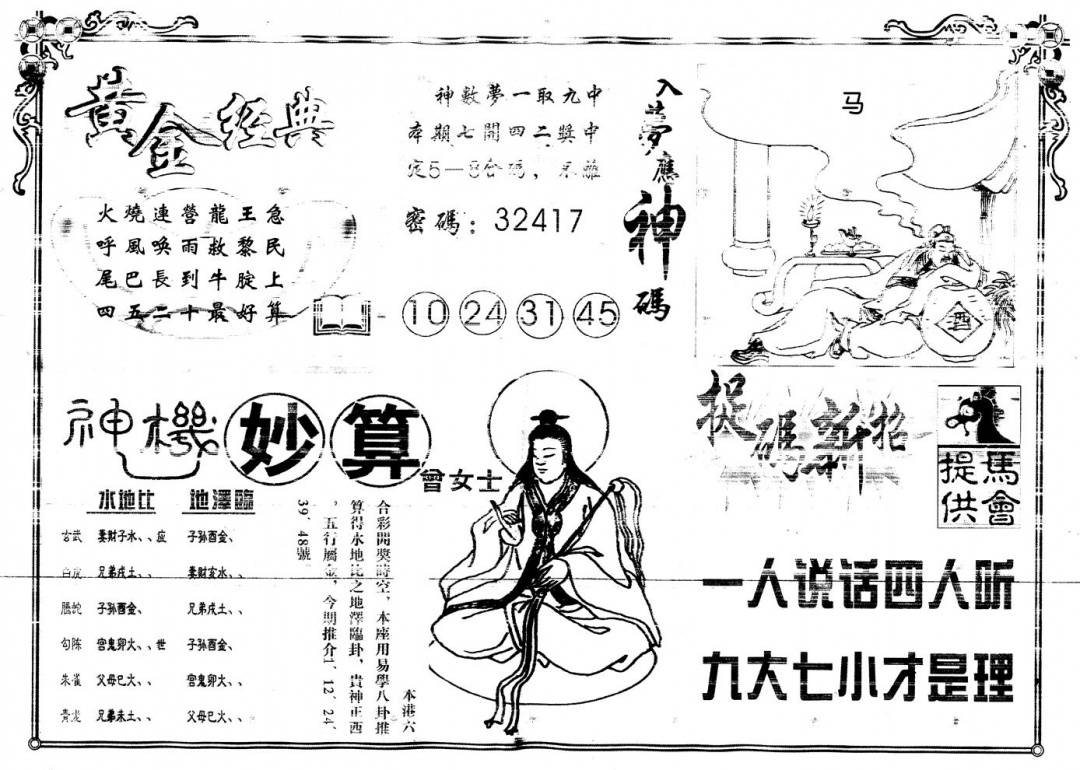 黄金经典
火燒連營龍王急
呼風喚雨救黎民
尾巴長到牛腚上
四五二十最好算
神數夢一取九中
本期七開四二獎中
定5—8合碼，不離
密碼：32417
10 24 31 45
入夢應神碼
马
酒
神機妙算
曾女士
水地比 地澤臨
玄武 妻財子水、、应 子孙酉金、、
白虎 兄弟戌土、 妻財亥水、、
螣蛇 子孙酉金、、 兄弟戌土、、
句陈 官鬼卯火、、世 子孙酉金、
朱雀 父母巳火、、 官鬼卯火、、
青龙 兄弟未土、、 父母巳火、
本港六
合彩開獎時空，本座用易學八卦推
算得水地比之地澤臨卦，貴神正西
，五行屬金，今期推介1、12、24、
39、48號
捉碼新招
馬會提供
一人说话四人听
九大七小才是理